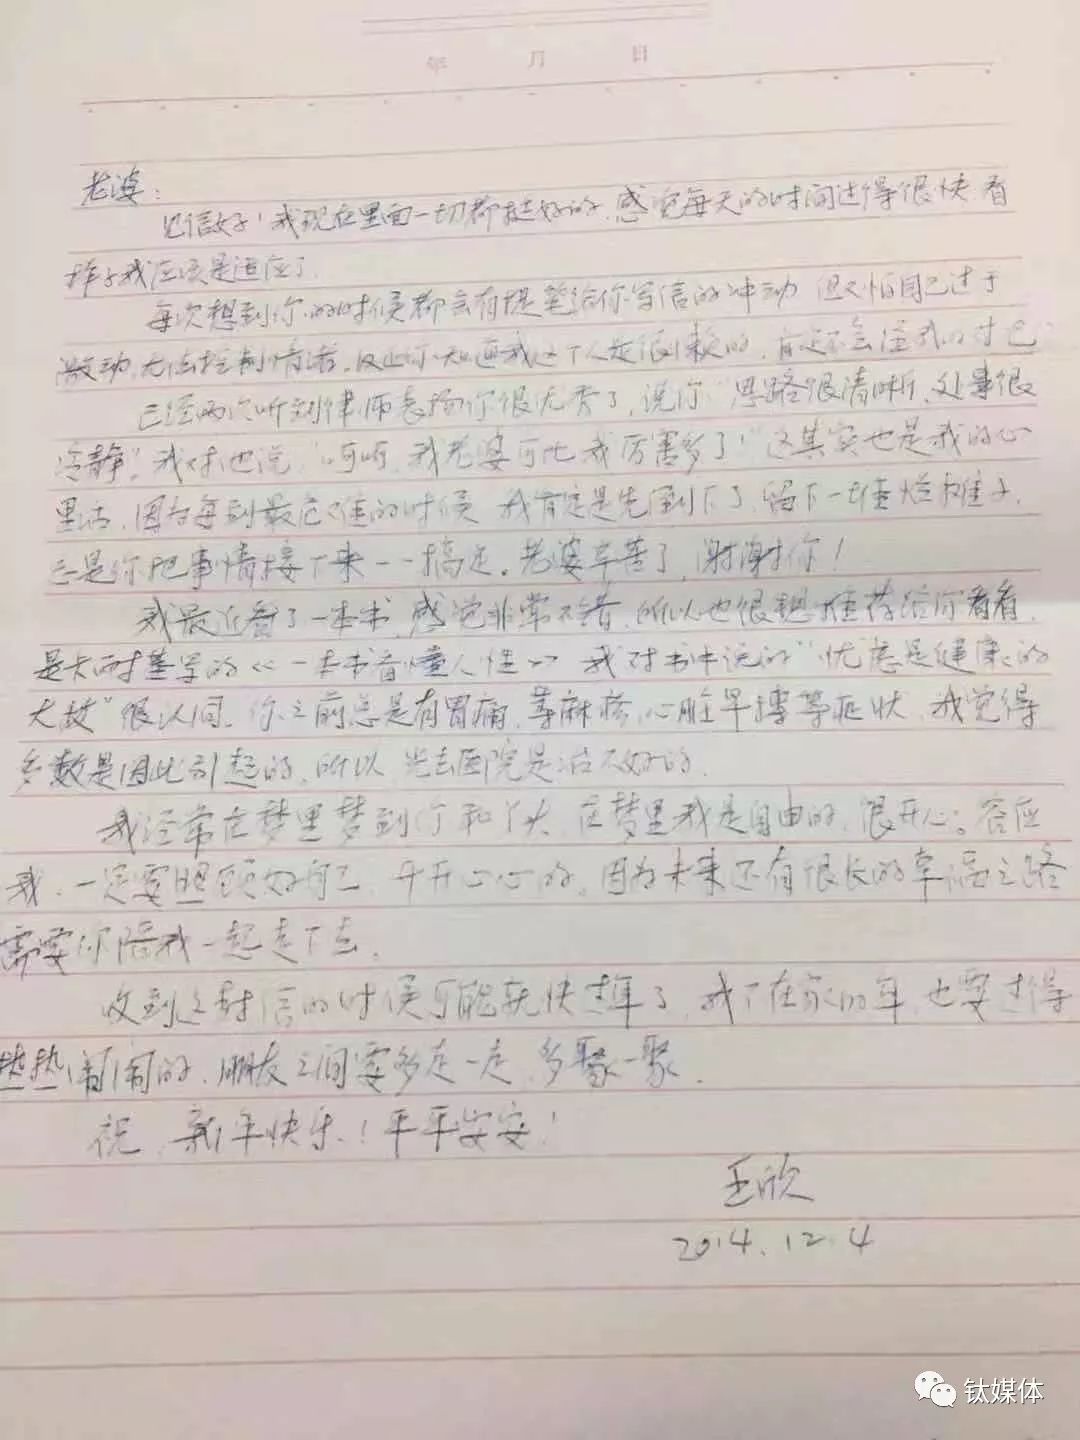 年 月 日
老婆：
见信好！我现在里面一切都挺好的，感觉每天的时间过得很快，看
样子我应该是适应了。
每次想到你的时候都会有提笔给你写信的冲动，但又怕自己过于
激动，无法控制情绪，反正你知道我这个人是很懒的，肯定不会怪我的对吧
已经两次听刘律师表扬你很优秀了，说你"思路很清晰，处事很
冷静"。我对他说，"呵呵，我老婆可比我厉害多了！"这其实也是我的心
里话，因为每到最危难的时候，我肯定是先倒下了，留下一堆烂摊子，
总是你把事情接下来一一搞定。老婆辛苦了，谢谢你！
我最近看了一本书，感觉非常不错，所以也很想推荐给你看看，
是卡耐基写的《一本书看懂人性》，我对书中说的"忧虑是健康的
大敌"很认同。你之前总是有胃痛，荨麻疹，心脏早搏等症状，我觉得
多数是因此引起的，所以，光去医院是治不好的。
我经常在梦里梦到你和丫头，在梦里我是自由的，很开心。答应
我，一定要照顾好自己，开开心心的，因为未来还有很长的幸福之路
需要你陪我一起走下去。
收到这封信的时候可能就快过年了，我不在家的年，也要过得
热热闹闹的，朋友之间要多走一走，多聚一聚。
祝，新年快乐！平平安安！
王欣
2014.12.4
钛媒体